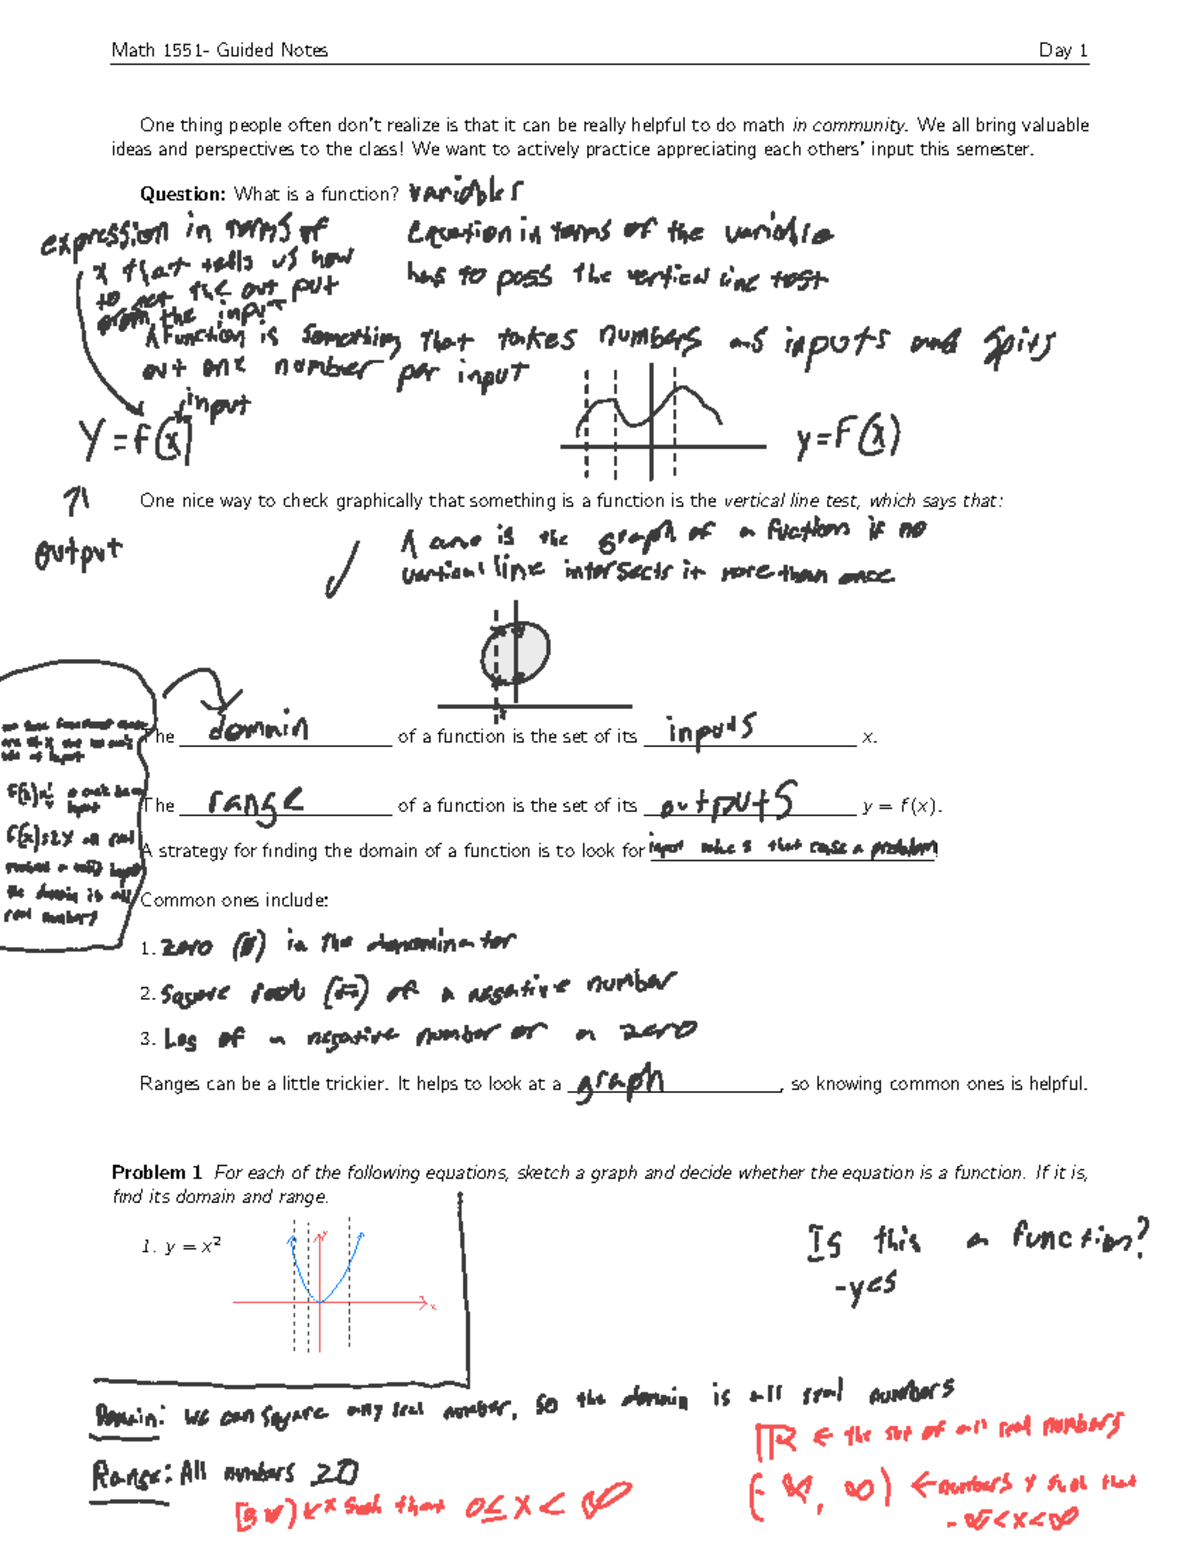 Math 1551- Guided Notes Day 1
One thing people often don't realize is that it can be really helpful to do math in community. We all bring valuable
ideas and perspectives to the class! We want to actively practice appreciating each others' input this semester.
Question: What is a function? variables
expression in terms of
x that tells us how
to get the out put
from the input
Equation in terms of the variable
has to pass the vertical line test
A Function is something that takes numbers as inputs and spits
out one number per input
input
Y = f(x)
y = F(x)
output
One nice way to check graphically that something is a function is the vertical line test, which says that:
A curve is the graph of a fuction if no
vertical line intersects it more than once
The domain of a function is the set of its inputs x.
The range of a function is the set of its outputs y = f(x).
A strategy for finding the domain of a function is to look for input that cause a problem!
f(x)=2x all real
the domain is all
real numbers
Common ones include:
1. zero (0) in the denominator
2. Square root (√) of a negative number
3. Log of a negative number or a zero
Ranges can be a little trickier. It helps to look at a graph, so knowing common ones is helpful.
Problem 1 For each of the following equations, sketch a graph and decide whether the equation is a function. If it is,
find its domain and range.
1. y = x²
y
x
Is this a function?
-yes
Domain: we can square any real number, so the domain is all real numbers
ℝ ← the set of all real numbers
Range: All numbers ≥0
(-∞, ∞) ← numbers x such that
-∞<x<∞
x such that 0≤x<∞